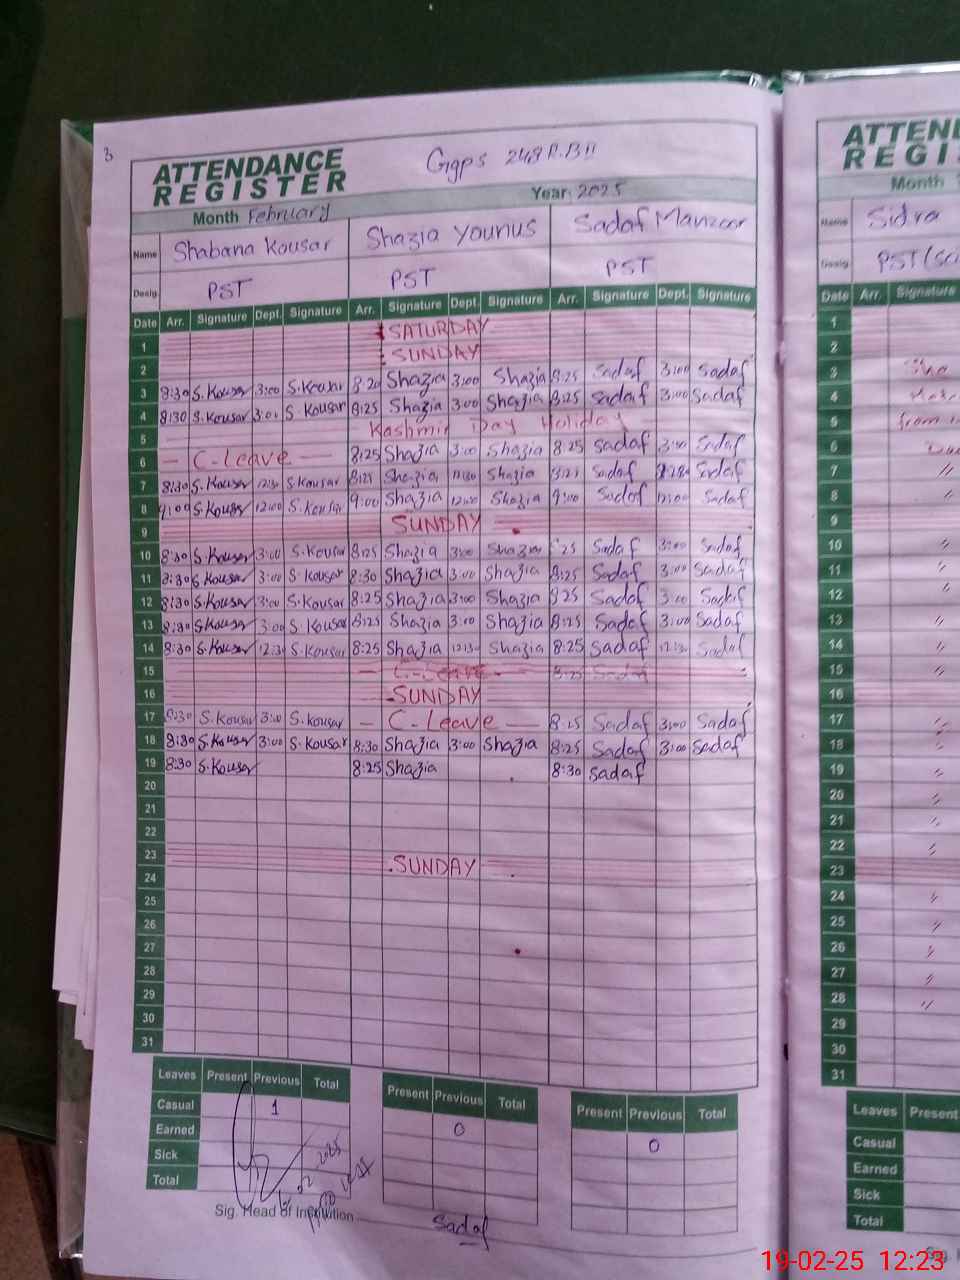 3
ATTENDANCE
REGISTER
Ggps 248 R.B II
Year 2025
Month February
Name Shabana Kousar Shazia Younus Sadaf Manzoor
Desig. PST PST PST
Date Arr. Signature Dept. Signature Arr. Signature Dept. Signature Arr. Signature Dept. Signature
1 SATURDAY
2 SUNDAY
3 8:30 S.Kousar 3:00 S.Kousar 8:20 Shazia 3:00 Shazia 8:25 Sadaf 3:00 Sadaf
4 8:30 S.Kousar 3:00 S Kousar 8:25 Shazia 3:00 Shazia 8:25 Sadaf 3:00 Sadaf
5 Kashmir Day Holiday
6 — C-Leave — 8:25 Shazia 3:00 Shazia 8:25 Sadaf 3:00 Sadaf
7 8:30 S.Kousar 12:30 S.Kousar Shazia Shazia Sadaf Sadaf
8 9:00 S.Kousar 12:00 S.Kousar 9:00 Shazia 12:00 Shazia 9:00 Sadaf 12:00 Sadaf
9 SUNDAY
10 8:30 S.Kousar 3:00 S.Kousar 8:25 Shazia 3:00 Shazia Sadaf 3:00 Sadaf
11 8:30 S.Kousar 3:00 S.Kousar 8:30 Shazia 3:00 Shazia 8:25 Sadaf 3:00 Sadaf
12 8:30 S.Kousar 3:00 S.Kousar 8:25 Shazia 3:00 Shazia 8:25 Sadaf 3:00 Sadaf
13 8:30 S.Kousar 3:00 S.Kousar 8:25 Shazia 3:00 Shazia 8:25 Sadaf 3:00 Sadaf
14 8:30 S.Kousar 12:30 S.Kousar 8:25 Shazia 12:30 Shazia 8:25 Sadaf 12:30 Sadaf
15 — C-Leave — 8:25 Sadaf
16 SUNDAY
17 8:30 S.Kousar 3:00 S.Kousar — C-Leave — 8:25 Sadaf 3:00 Sadaf
18 8:30 S.Kousar 3:00 S.Kousar 8:30 Shazia 3:00 Shazia 8:25 Sadaf 3:00 Sadaf
19 8:30 S.Kousar 8:25 Shazia 8:30 Sadaf
20
21
22
23 SUNDAY
24
25
26
27
28
29
30
31
Leaves Present Previous Total Present Previous Total Present Previous Total
Casual 1 0 0
Earned
Sick
Total
2025
Sig. Head of Institution
Sadaf
ATTEN
REGI
Month
Name Sidra
Desig. PST
Date Arr. Signature
1
2
3
4
5 from
6
7 "
8 "
9
10 "
11 "
12 "
13 "
14 "
15 "
16
17 "
18 "
19 "
20 "
21 "
22 "
23
24 "
25 "
26 "
27 "
28 "
29
30
31
Leaves Present
Casual
Earned
Sick
Total
Sig.
19-02-25 12:23